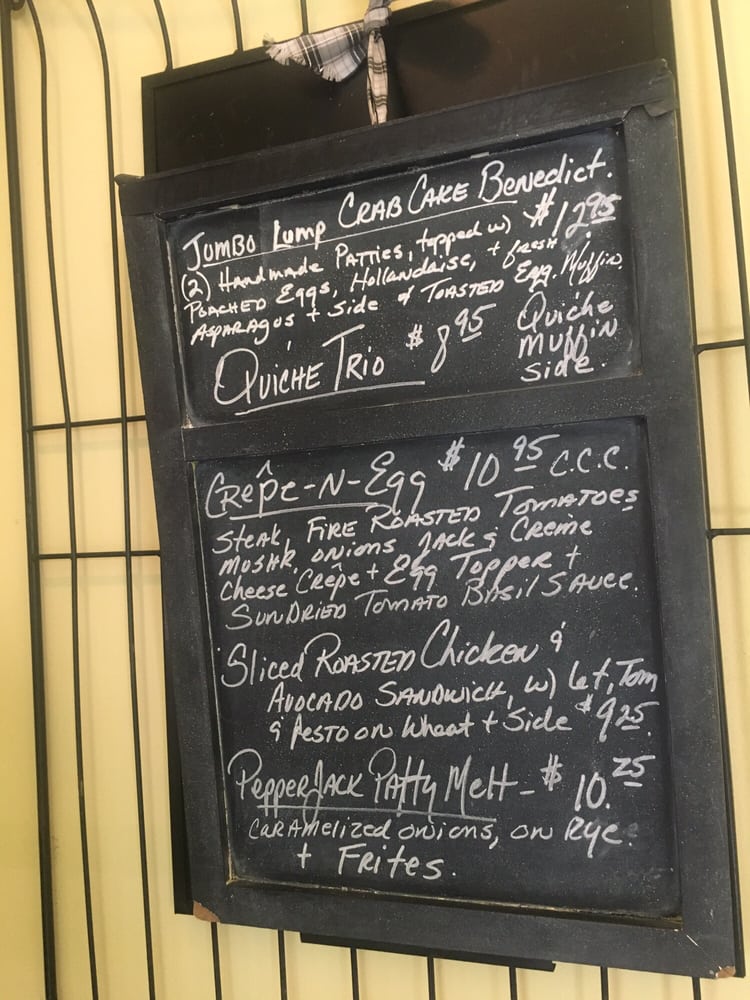 JUMBO Lump CRAB CAKE Benedict.
(2) Handmade PATTIES, topped w) $12.95
POACHED Eggs, Hollandaise, + fresh
ASPARAGUS + Side of TOASTED Eng. Muffin.
QUICHE TRIO $8 95 Quiche
muffin
side.
Crêpe-N-Egg $10 95 C.C.C.
Steak, FIRE ROASTED TOMATOES
MUSHR, ONIONS JACK & Creme
Cheese Crêpe + Egg Topper +
SUNDRIED TOMATO Basil SAUCE.
Sliced ROASTED Chicken &
AVOCADO SANDWICH, w) Let, Tom
& Pesto on Wheat + Side $9 25.
PepperJack Patty Melt - $10. 25
CARAMelized onions, on Rye.
+ Frites.